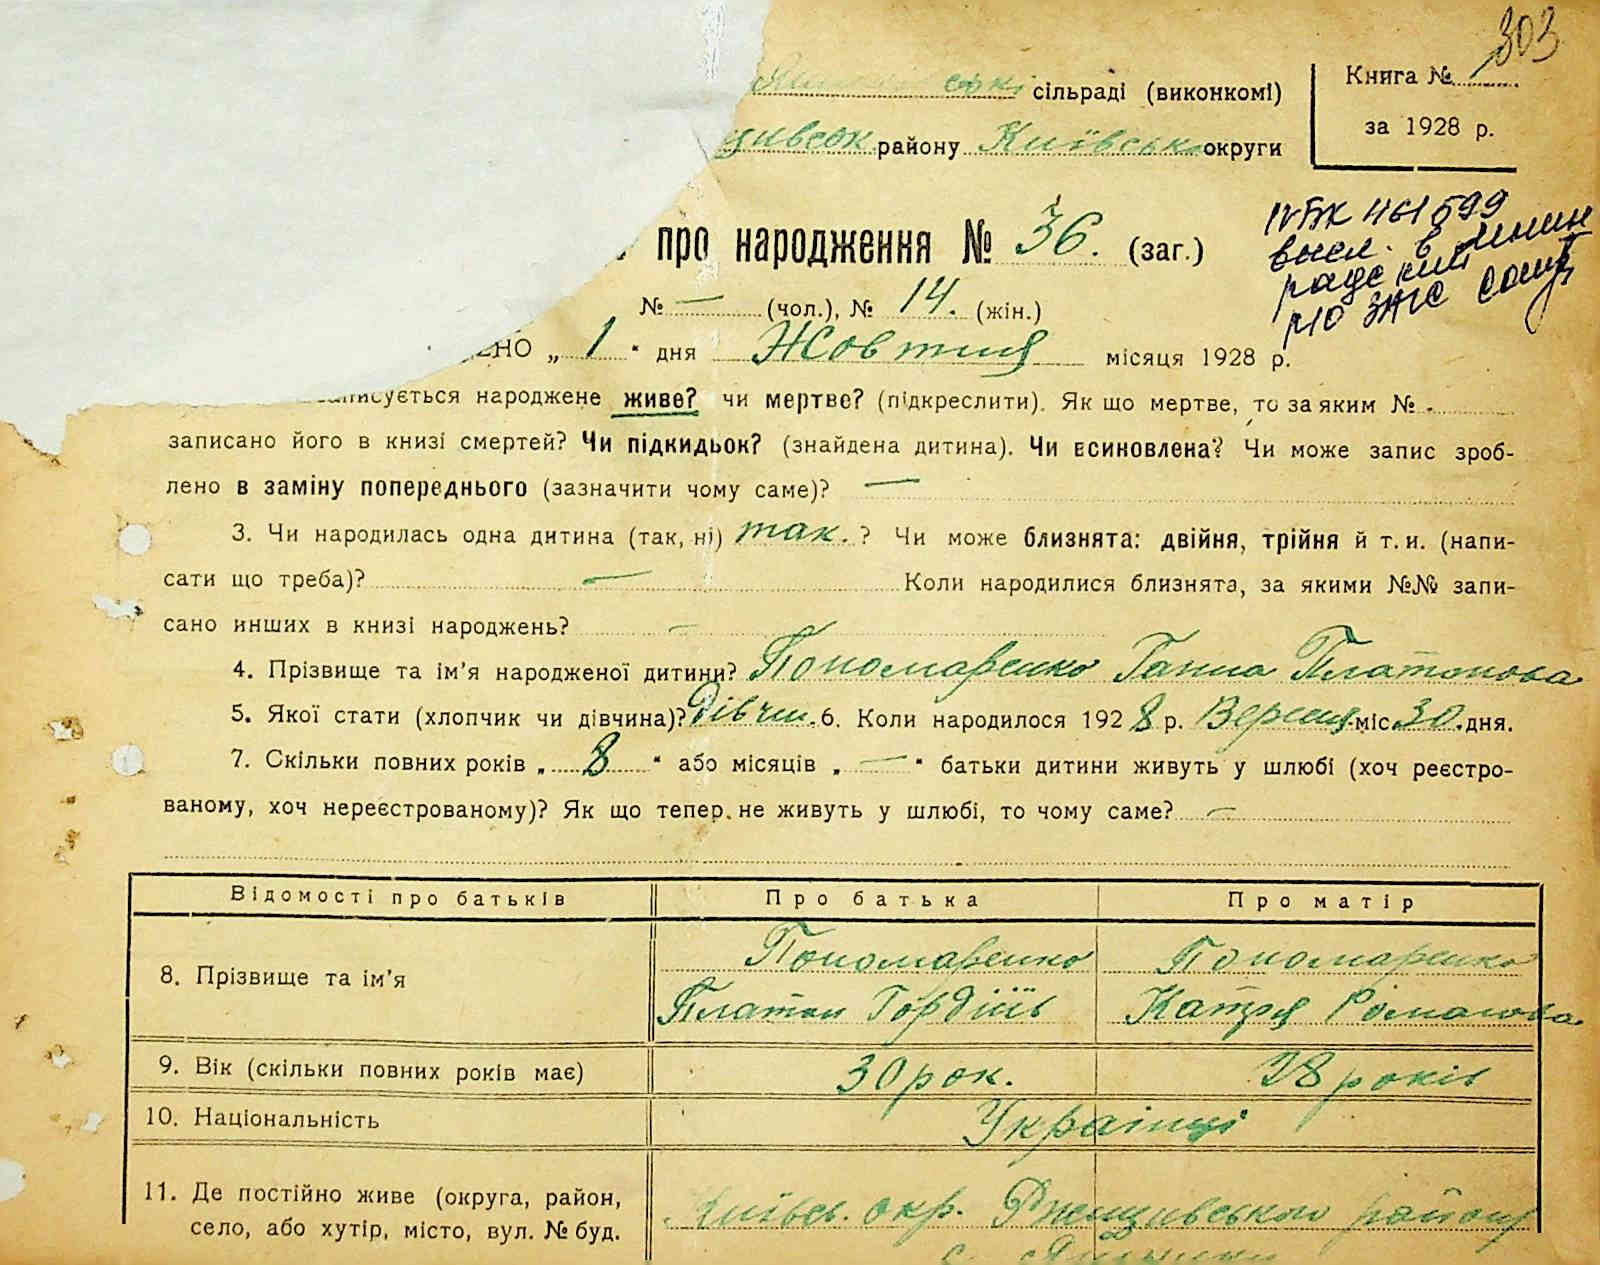 303
Книга № 1
за 1928 р.
сільраді (виконкомі)
району Київськ округи
IV БК 461599
высл. в
ЗАГС
про народження № 36. (заг.)
№ — (чол.), № 14. (жін.)
ЕНО „ 1 " дня Жовтня місяця 1928 р.
записується народжене живе? чи мертве? (підкреслити). Як що мертве, то за яким №
записано його в книзі смертей? Чи підкидьок? (знайдена дитина). Чи всиновлена? Чи може запис зроб-
лено в заміну попереднього (зазначити чому саме)? —
3. Чи народилась одна дитина (так, ні) так. ? Чи може близнята: двійня, трійня й т. и. (напи-
сати що треба)? — Коли народилися близнята, за якими №№ запи-
сано инших в книзі народжень? —
4. Прізвище та ім'я народженої дитини? Пономаренко Ганна Платонова
5. Якої стати (хлопчик чи дівчина)? Дівчин. 6. Коли народилося 1928 р. Вересня міс. 30. дня.
7. Скільки повних років „ 8 " або місяців „ — " батьки дитини живуть у шлюбі (хоч реєстро-
ваному, хоч нереєстрованому)? Як що тепер не живуть у шлюбі, то чому саме? —
Відомості про батьків Про батька Про матір
8. Прізвище та ім'я Пономаренко Платон Гордіїв Пономаренко Катря Романова
9. Вік (скільки повних років має) 30 рок. 28 років
10. Національність Українці
11. Де постійно живе (округа, район,
село, або хутір, місто, вул. № буд.
Київсь. окр. Ржищівського району
с.